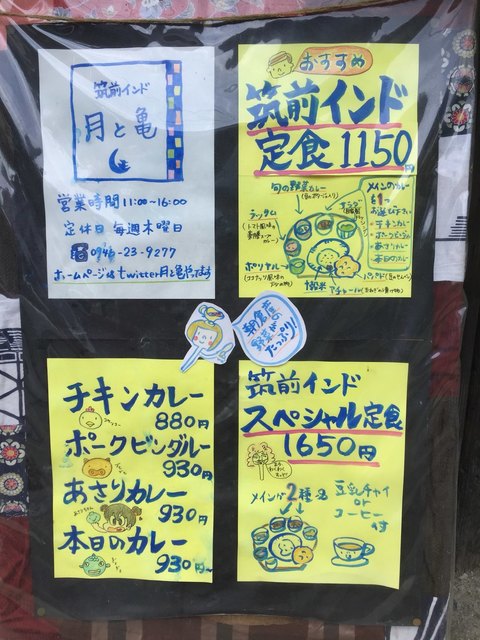 筑前インド
月と亀
営業時間 11:00〜16:00
定休日 毎週木曜日
☎0946-23-9277
ホームページはtwitter月と亀やってます
おすすめ
筑前インド
定食1150円
旬の野菜カレー
ラッサム
(トマト風味の
メインのカレーを
1つ
お選び下さい
・チキンカレー
・ポークビンダルー
・あさりカレー
・本日のカレー
ポリヤル
アチャール
パパド
朝倉産の
野菜が
たっぷり!
チキンカレー
880円
ポークビンダルー
930円
あさりカレー
930円
本日のカレー
930円〜
筑前インド
スペシャル定食
1650円
メインが2種
豆乳チャイ
or
コーヒー
付